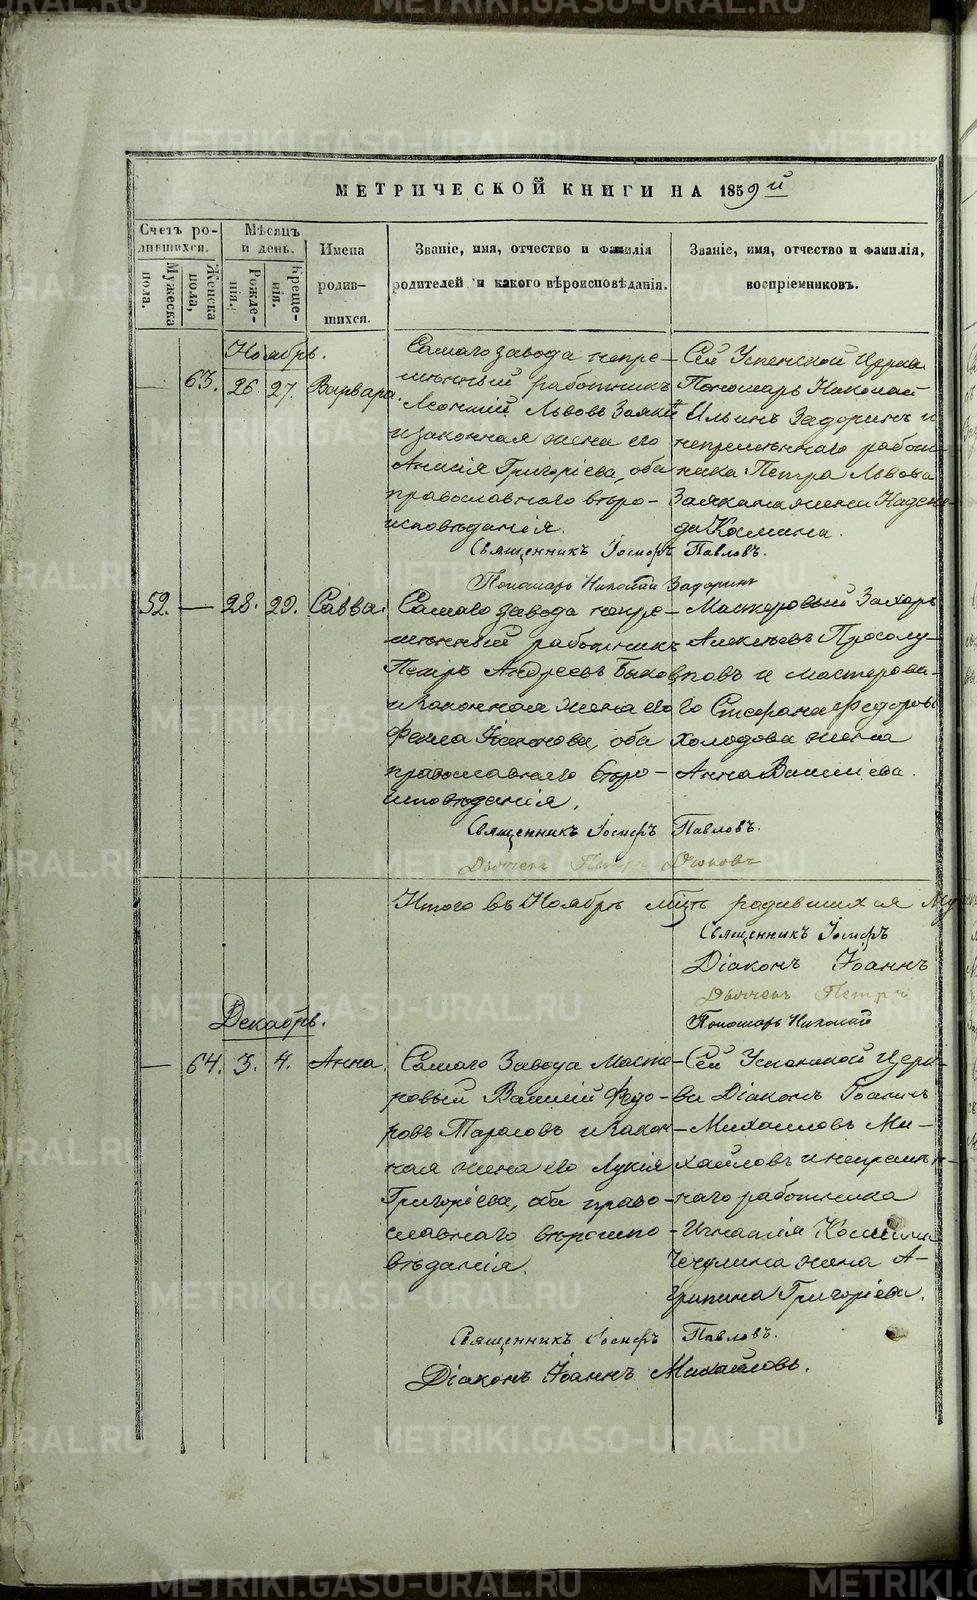 МЕТРИЧЕСКОЙ КНИГИ НА 1859й
Счетъ родившихся.
Мужеска пола.
Женска пола,
Мѣсяцъ и день.
Рожденiя.
Крещенiя.
Имена родившихся.
Званіе, имя, отчество и фамилія родителей и какого вѣроисповѣданія.
Званіе, имя, отчество и фамилія, воспріемниковъ.
Ноябрь.
— 63. 26. 27. Варвара.
Самаго завода непре-
мѣнный работникъ
Леонтій Львовъ
и законная жена его
Анисія Григоріева, оба
православнаго вѣро-
исповѣданія.
Сей Успенской Церкви
Пономарь Николай
Ильинъ Задоринъ и
непремѣннаго работ-
ника Петра Львова
Заякина жена Надеж-
да Космина.
Священникъ Іосифъ Павловъ.
Пономарь Николай Задоринъ
52. — 28. 29. Савва.
Самаго завода непре-
мѣнный работникъ
Петръ Андреевъ Быковъ
и законная жена его
Фекла оба
православнаго вѣро-
исповѣданія.
Мастеровый Захаръ
Алексѣевъ Просолу-
повъ и мастерова-
го Стефана Федорова
Холодова жена
Анна Василіева.
Священникъ Іосифъ Павловъ.
Дьячекъ Петръ
Итого въ Ноябрѣ родившихся
Священникъ Іосифъ
Діаконъ Іоаннъ
Дьячекъ Петръ
Пономарь Николай
Декабрь.
— 64. 3. 4. Анна.
Самаго Завода Масте-
ровый Василій Федо-
ровъ Тарасовъ и закон-
ная жена его Лукія
Григоріева, оба право-
славнаго вѣроиспо-
вѣданія.
Сей Успенской Церк-
ви Діаконъ Іоаннъ
Михаиловъ Ми-
хайловъ и непремѣн-
наго работника
Игнатія
Чечулина жена А-
грипина Григоріева.
Священникъ Іосифъ Павловъ.
Діаконъ Іоаннъ Михайловъ.
METRIKI.GASO-URAL.RU